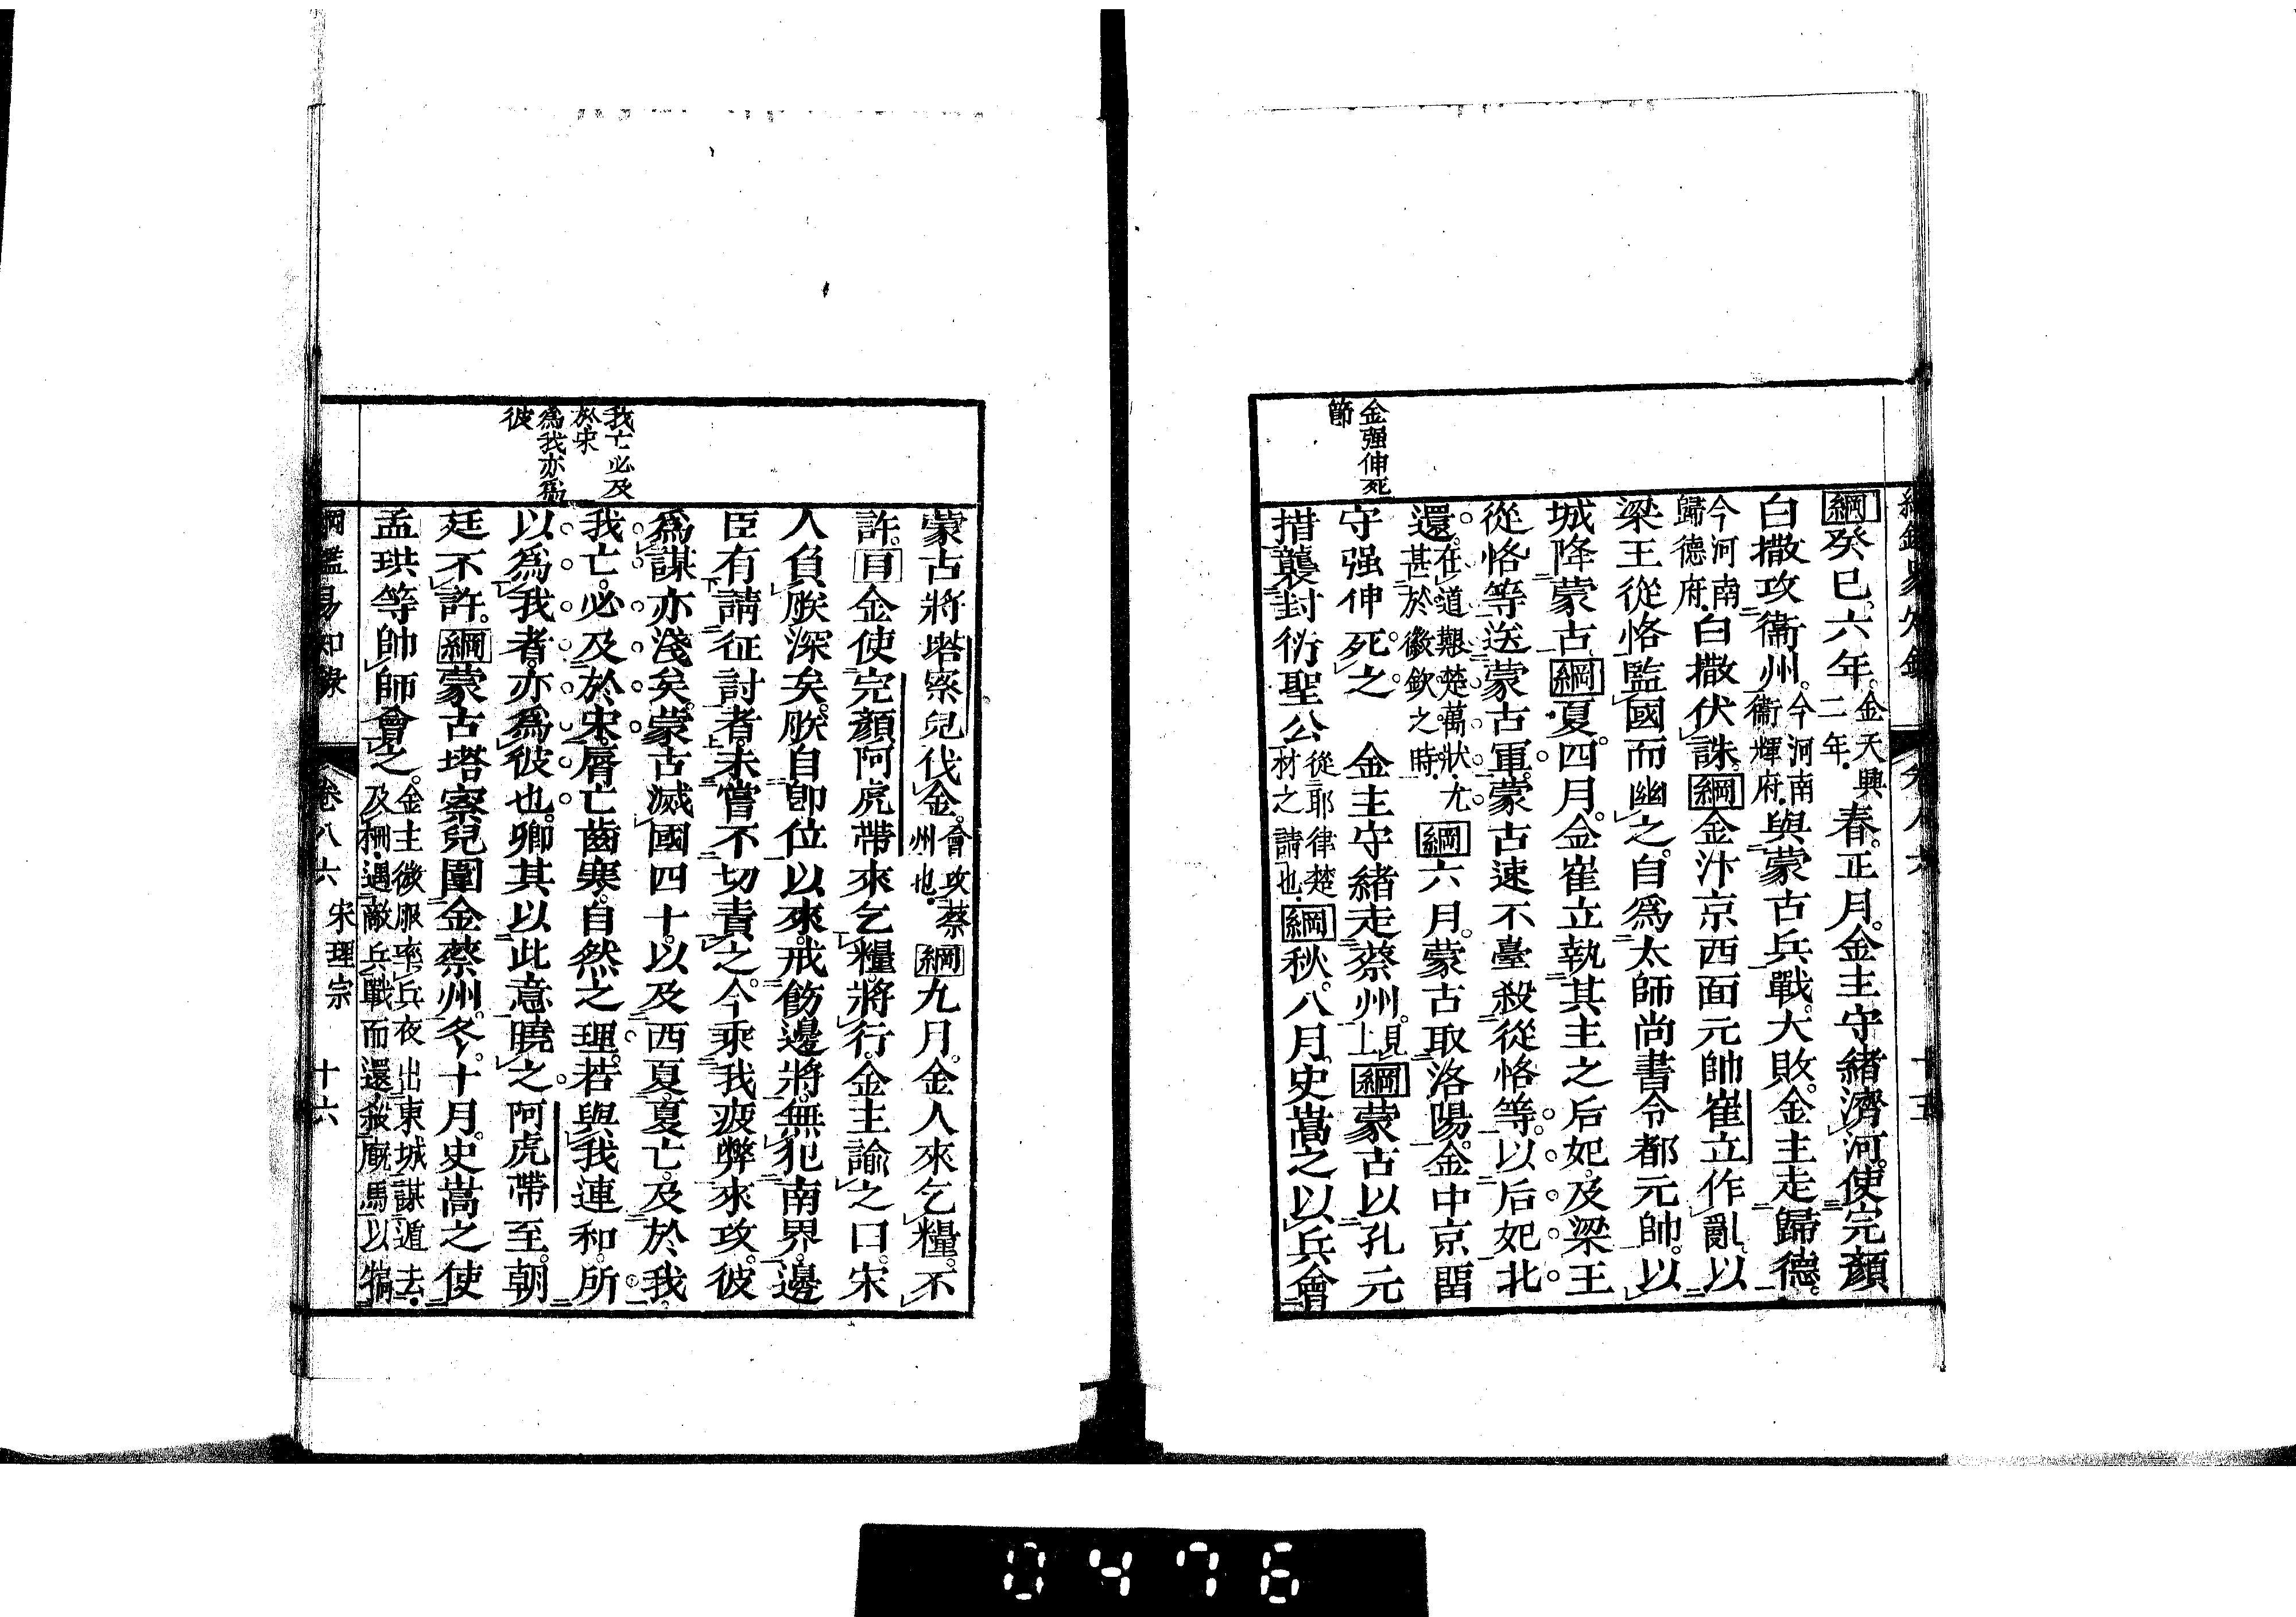 綱癸巳六年金天興二年春正月金主守緒濟河使完顏
白撒攻衞州今河南衞輝府與蒙古兵戰大敗金主走歸德
今河南歸德府白撒伏誅綱金汴京西面元帥崔立作亂以
梁王從恪監國而幽之自爲太師尚書令都元帥以
城降蒙古綱夏四月金崔立執其主之后妃及梁王
從恪等送蒙古軍蒙古速不臺殺從恪等以后妃北
還在道艱楚萬狀尤甚於徽欽之時綱六月蒙古取洛陽金中京畱
守强伸死之 金主守緒走蔡州見上綱蒙古以孔元
措襲封衍聖公從耶律楚材之請也綱秋八月史嵩之以兵會
金强伸死
節
蒙古將塔察兒伐金會攻蔡州也綱九月金人來乞糧不
許目金使完顏阿虎帶來乞糧將行金主諭之曰宋
人負朕深矣朕自卽位以來戒飭邊將無犯南界邊
臣有請征討者未嘗不切責之今乘我疲弊來攻彼
爲謀亦淺矣蒙古滅國四十以及西夏夏亡及於我
我亡必及於宋脣亡齒寒自然之理若與我連和所
以爲我者亦爲彼也卿其以此意曉之阿虎帶至朝
廷不許綱蒙古塔察兒圍金蔡州冬十月史嵩之使
孟珙等帥師會之金主微服率兵夜出東城謀遁去及柵遇敵兵戰而還殺廐馬以犒
我亡必及
於宋
爲我亦爲
彼
綱鑑易知錄 卷八六 宋理宗 十六
0476